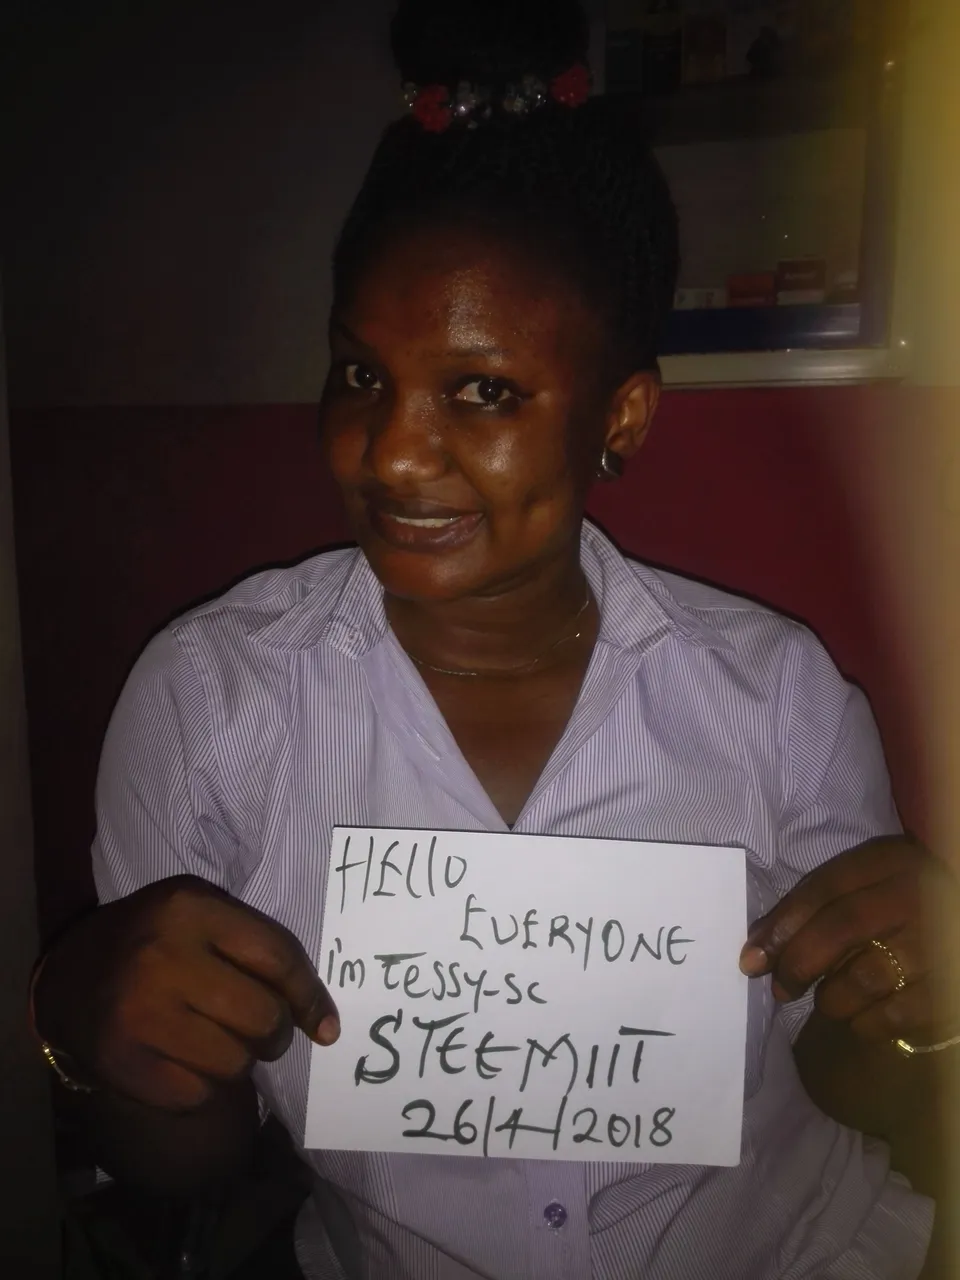 HEllO
EVERYONE
i'm Tessy-sc
STEEMIIT
26/4/2018